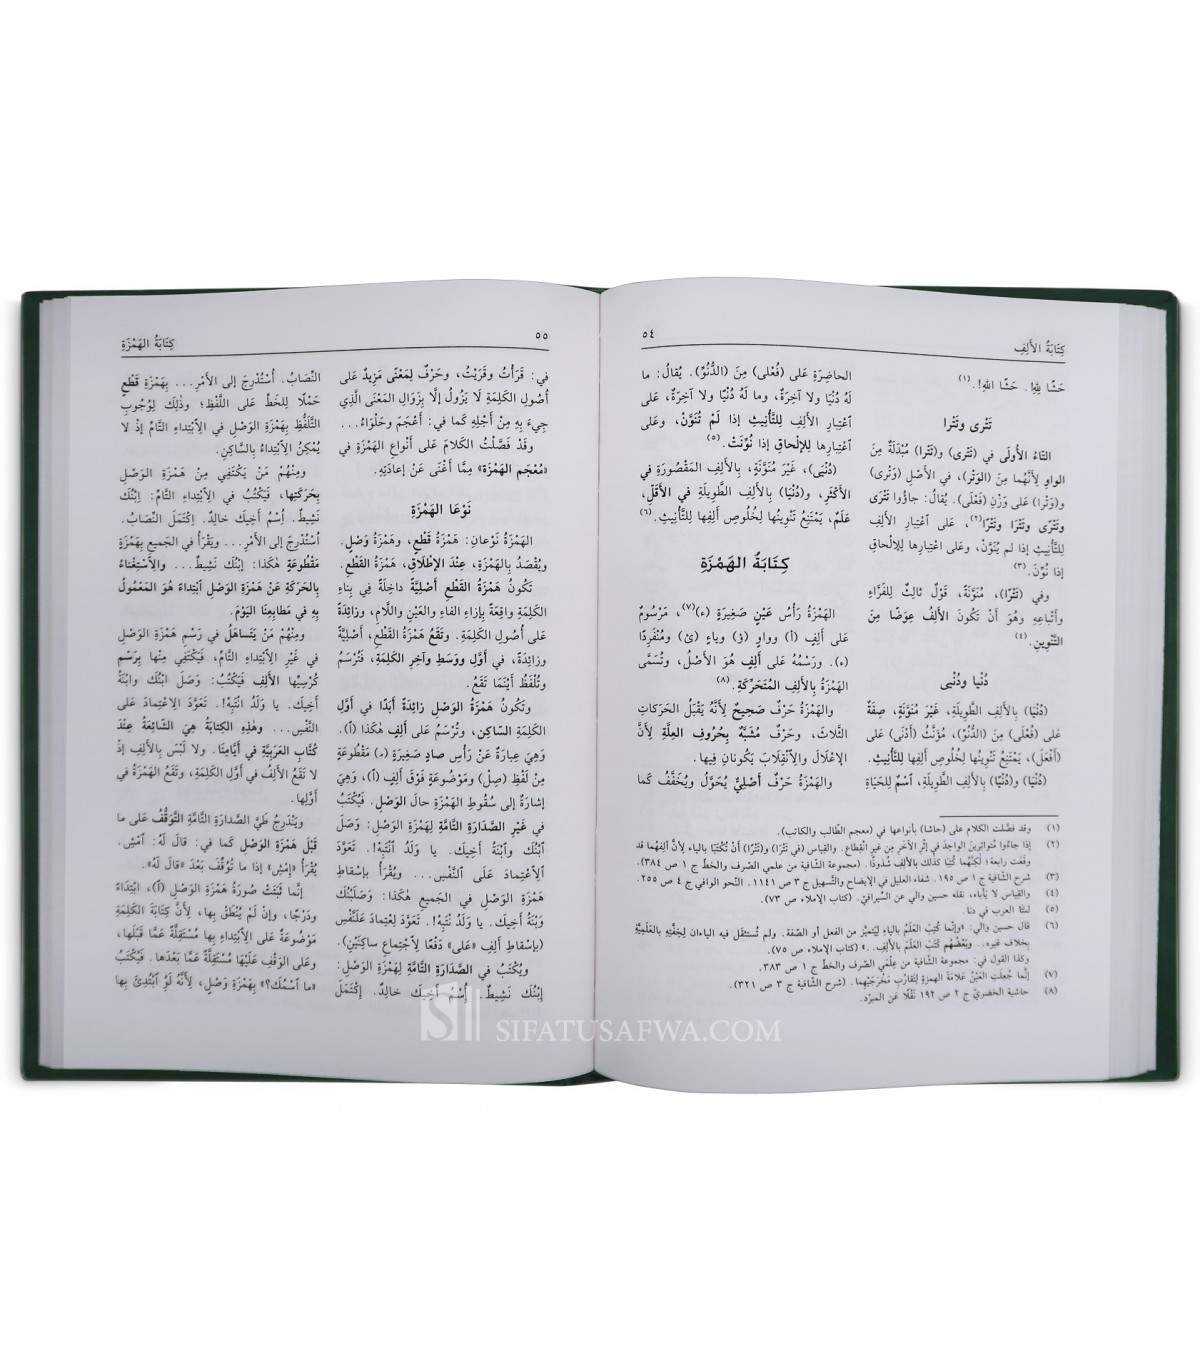 كِتَابَةُ الأَلِفِ
٥٤
حَشَا لِلّٰهِ!. حَشَا اللهِ!.(١)
تَتْرى وتَتْرا
التَّاءُ الأُولَى في (تَتْرى) و(تَتْرا) مُبْدَلَةٌ مِنَ
الواوِ لِأَنَّهُما مِنَ (الوَتْرِ)، في الأَصْلِ (وَتْرى)
و(وَتْرا) عَلى وَزْنِ (فَعْلى). يُقالُ: جاؤُوا تَتْرَى
وتَتْرًى وتَتْرَا وتَتْرًا(٢)، عَلى ٱعْتِبارِ الأَلِفِ
لِلتَّأْنِيثِ إِذا لم يُنَوَّنْ، وعَلى اعْتِبارِها لِلإِلْحاقِ
إِذا نُوِّنَ.(٣)
وفي (تَتْرًا)، مُنَوَّنَةً، قَوْلٌ ثالِثٌ لِلفَرَّاءِ
وأَتْباعِهِ وهُوَ أَنْ تَكُونَ الأَلِفُ عِوَضًا مِنَ
التَّنْوِينِ.(٤)
دُنْيا ودُنْيى
(دُنْيَا) بِالأَلِفِ الطَّوِيلَةِ، غَيْرَ مُنَوَّنَةٍ، صِفَةٌ
عَلى (فُعْلَى) مِنَ (الدُّنُوِّ)، مُؤَنَّثُ (أَدْنَى) عَلى
(أَفْعَلَ)، يَمْتَنِعُ تَنْوِينُها لِخُلُوصِ أَلِفِها لِلتَّأْنِيثِ.
(دُنْيَا) و(دُنْيًا) بِالأَلِفِ الطَّوِيلَةِ، ٱسْمٌ لِلحَيَاةِ
الحاضِرَةِ عَلى (فُعْلى) مِنَ (الدُّنُوِّ). يُقالُ: ما
لَهُ دُنْيًا ولا آخِرَةٌ، وما لَهُ دُنْيَا ولا آخِرَةٌ، عَلى
ٱعْتِبارِ الأَلِفِ لِلتَّأْنِيثِ إِذا لَمْ تُنَوَّنْ، وعَلى
ٱعْتِبارِها لِلإِلْحاقِ إِذا نُوِّنَتْ.(٥)
(دُنْيَى)، غَيْرَ مُنَوَّنَةٍ، بِالأَلِفِ المَقْصُورَةِ في
الأَكْثَرِ، و(دُنْيَا) بِالأَلِفِ الطَّوِيلَةِ في الأَقَلِّ،
عَلَمٌ، يَمْتَنِعُ تَنْوِينُها لِخُلُوصِ أَلِفِها لِلتَّأْنِيثِ.(٦)
كِتَابَةُ الهَمْزَةِ
الهَمْزَةُ رَأْسُ عَيْنٍ صَغِيرَةٍ (ء)(٧)، مَرْسُومٌ
عَلى أَلِفٍ (أ) وواوٍ (ؤ) وياءٍ (ئ) ومُنْفَرِدًا
(ء). ورَسْمُهُ عَلى أَلِفٍ هُوَ الأَصْلُ، وتُسَمَّى
الهَمْزَةُ بِالأَلِفِ المُتَحَرِّكَةِ.(٨)
والهَمْزَةُ حَرْفٌ صَحِيحٌ لِأَنَّهُ يَقْبَلُ الحَرَكاتِ
الثَّلاثَ، وحَرْفٌ مُشَبَّهٌ بِحُرُوفِ العِلَّةِ لِأَنَّ
الإِعْلالَ والاِنْقِلابَ يَكُونانِ فِيها.
والهَمْزَةُ حَرْفٌ أَصْلِيٌّ يُحَوَّلُ ويُخَفَّفُ كَما
(١) وقد فصّلت الكلام على (حاشا) بأنواعها في (معجم الطّالب والكاتب).
(٢) إذا جاءوا مُتواتِرين الواحِدُ في إثْرِ الآخَر مِن غيرِ انقِطاع. والقِياس (في تَتْرَا) و(تَتْرًا) أنْ تُكْتَبَ بالياء لِأنَّ ألِفَهُما قد
وقعت رابعة؛ لكِنَّهُما كُتِبَا كذلك بالألِف شُذوذًا. (مجموعة الشّافية من علمي الصّرف والخطّ ج ١ ص ٣٨٤).
(٣) شرح الشّافية ج ١ ص ١٩٥. شفاء العليل في الإيضاح والتّسهيل ج ٣ ص ١١٤١. النّحو الوافي ج ٤ ص ٢٥٥.
(٤) والقياس لا يأباه، نقله حسين والي عن السِّيرافيّ. (كتاب الإملاء ص ٧٣).
(٥) لسان العرب في دنا.
(٦) قال حسين والي: «وإنَّما كُتِبَ العَلَمُ بالياءِ ليَتَميَّز من الفعل أو الصِّفة. ولم تُستثقَل فيه الياءان لِخِفَّتِهِ بالعَلَمِيَّةِ
بخلاف غيره.. وبَعْضُهُم كَتَبَ العَلَمَ بالألِفِ..» (كتاب الإملاء ص ٧٥).
وكذا القول في: مجموعة الشّافية من علْمَي الصّرف والخطّ ج ١ ص ٣٨٣.
(٧) إنَّما جُعِلَتِ العَيْنُ عَلامَةَ الهمزةِ لِتَقارُبِ مَخْرَجَيْهِما. (شرح الشّافية ج ٣ ص ٣٢١).
(٨) حاشية الخضريّ ج ٢ ص ١٩٢ نَقْلًا عن المبرّد.
٥٥
كِتَابَةُ الهَمْزَةِ
في: قَرَأْتُ وقَرَيْتُ، وحَرْفٌ لِمَعْنًى مَزِيدٌ عَلى
أُصُولِ الكَلِمَةِ لَا يَزُولُ إِلَّا بِزَوالِ المَعْنَى الَّذِي
جِيءَ بِهِ مِنْ أَجْلِهِ كَما في: أَعْجَمَ وحَلْوَاءُ...
وقَدْ فَصَّلْتُ الكَلامَ عَلى أَنْواعِ الهَمْزَةِ في
«مُعْجَمِ الهَمْزَة» مِمَّا أَغْنَى عَنْ إِعادَتِهِ.
نَوْعَا الهَمْزَةِ
الهَمْزَةُ نَوْعانِ: هَمْزَةُ قَطْعٍ، وهَمْزَةُ وَصْلٍ.
ويُقْصَدُ بِالهَمْزَةِ، عِنْدَ الإِطْلاقِ، هَمْزَةُ القَطْعِ.
تَكُونُ هَمْزَةُ القَطْعِ أَصْلِيَّةً داخِلَةً في بِناءِ
الكَلِمَةِ واقِعَةً بِإِزاءِ الفاءِ والعَيْنِ واللَّامِ، وزائِدَةً
عَلى أُصُولِ الكَلِمَةِ. وتَقَعُ هَمْزَةُ القَطْعِ، أَصْلِيَّةً
وزائِدَةً، في أَوَّلِ ووَسَطِ وآخِرِ الكَلِمَةِ، فَتُرْسَمُ
وتُلْفَظُ أَيْنَما تَقَعُ.
وتَكُونُ هَمْزَةُ الوَصْلِ زائِدَةً أَبَدًا في أَوَّلِ
الكَلِمَةِ السَّاكِنِ، وتُرْسَمُ عَلى أَلِفٍ هٰكَذا (ٱ).
وَهِيَ عِبارَةٌ عَنْ رَأْسِ صادٍ صَغِيرَةٍ (ص) مَقْطُوعَةٍ
مِنْ لَفْظِ (صِلْ) ومَوْضُوعَةٍ فَوْقَ أَلِفٍ (ٱ)، وهِيَ
إِشارَةٌ إِلى سُقُوطِ الهَمْزَةِ حالَ الوَصْلِ. فَيُكْتَبُ
في غَيْرِ الصَّدَارَةِ التَّامَّةِ لِهَمْزَةِ الوَصْلِ: وَصَلَ
ٱبْنُكَ وٱبْنَةُ أَخِيكَ. يا وَلَدُ ٱنْتَبِهْ!. تَعَوَّدَ
ٱلاِعْتِمادَ عَلَى النَّفْسِ... ويُقْرَأُ بِإِسْقاطِ
هَمْزَةِ الوَصْلِ في الجَمِيعِ هٰكَذا: وَصَلَبْنُكَ
وَبْنَةُ أَخِيكَ. يا وَلَدُ نْتَبِهْ!. تَعَوَّدَ لِعْتِمادَ عَلَنَّفْسِ
(بِإِسْقاطِ أَلِفِ «عَلى» دَفْعًا لِٱجْتِماعِ ساكِنَيْنِ).
ويُكْتَبُ في الصَّدَارَةِ التَّامَّةِ لِهَمْزَةِ الوَصْلِ:
إِبْنُكَ نَشِيطٌ. إِسْمُ أَخِيكَ خالِدٌ. إِكْتَمَلَ
النِّصَابُ. أُسْتُدْرِجَ إِلى الأَمْرِ... بِهَمْزَةِ قَطْعٍ
حَمْلًا لِلخَطِّ عَلى اللَّفْظِ؛ وذٰلِكَ لِوُجُوبِ
التَّلَفُّظِ بِهَمْزَةِ الوَصْلِ في الاِبْتِداءِ التَّامِّ إِذْ لا
يُمْكِنُ الاِبْتِداءُ بِالسَّاكِنِ.
ومِنْهُمْ مَنْ يَكْتَفِي مِنْ هَمْزَةِ الوَصْلِ
بِحَرَكَتِها، فَيَكْتُبُ في الاِبْتِداءِ التَّامِّ: اِبْنُكَ
نَشِيطٌ. اِسْمُ أَخِيكَ خالِدٌ. اِكْتَمَلَ النِّصَابُ.
اُسْتُدْرِجَ إِلى الأَمْرِ... ويَقْرَأُ في الجَمِيعِ بِهَمْزَةٍ
مَقْطُوعَةٍ هٰكَذا: إِبْنُكَ نَشِيطٌ... والاِسْتِغْناءُ
بِالحَرَكَةِ عَنْ هَمْزَةِ الوَصْلِ ٱبْتِداءً هُوَ المَعْمُولُ
بِهِ في مَطابِعِنَا اليَوْمَ.
ومِنْهُمْ مَنْ يَتَساهَلُ في رَسْمِ هَمْزَةِ الوَصْلِ
في غَيْرِ الاِبْتِداءِ التَّامِّ، فَيَكْتَفِي مِنْها بِرَسْمِ
كُرْسِيِّها الأَلِفِ فَيَكْتُبُ: وَصَلَ ابْنُكَ وابْنَةُ
أَخِيكَ. يا وَلَدُ انْتَبِهْ!. تَعَوَّدَ الِاعْتِمادَ عَلى
النَّفْسِ... وهٰذِهِ الكِتابَةُ هِيَ الشَّائِعَةُ عِنْدَ
كُتَّابِ العَرَبِيَّةِ في أَيَّامِنا. ولا لَبْسَ بِالأَلِفِ إِذْ
لا تَقَعُ الأَلِفُ في أَوَّلِ الكَلِمَةِ، وتَقَعُ الهَمْزَةُ في
أَوَّلِها.
ويَنْدَرِجُ طَيَّ الصَّدارَةِ التَّامَّةِ التَّوَقُّفُ عَلى ما
قَبْلَ هَمْزَةِ الوَصْلِ كَما في: قالَ لَهُ: ٱمْشِ.
يُقْرَأُ «إِمْشِ» إِذا ما تُوُقِّفَ بَعْدَ «قالَ لَهُ».
إِنَّما ثَبَتَتْ صُورَةُ هَمْزَةِ الوَصْلِ (ٱ)، ابْتِداءً
ودَرْجًا، وإِنْ لَمْ يُنْطَقْ بِها، لِأَنَّ كِتابَةَ الكَلِمَةِ
مَوْضُوعَةٌ عَلى الاِبْتِداءِ بِها مُسْتَقِلَّةً عَمَّا قَبْلَها،
وعَلى الوَقْفِ عَلَيْها مُسْتَقِلَّةً عَمَّا بَعْدَها. فَيُكْتَبُ
«ما ٱسْمُكَ؟» بِهَمْزَةِ وَصْلٍ، لِأَنَّهُ لَوْ ٱبْتُدِئَ بِها
SIFATUSAFWA.COM